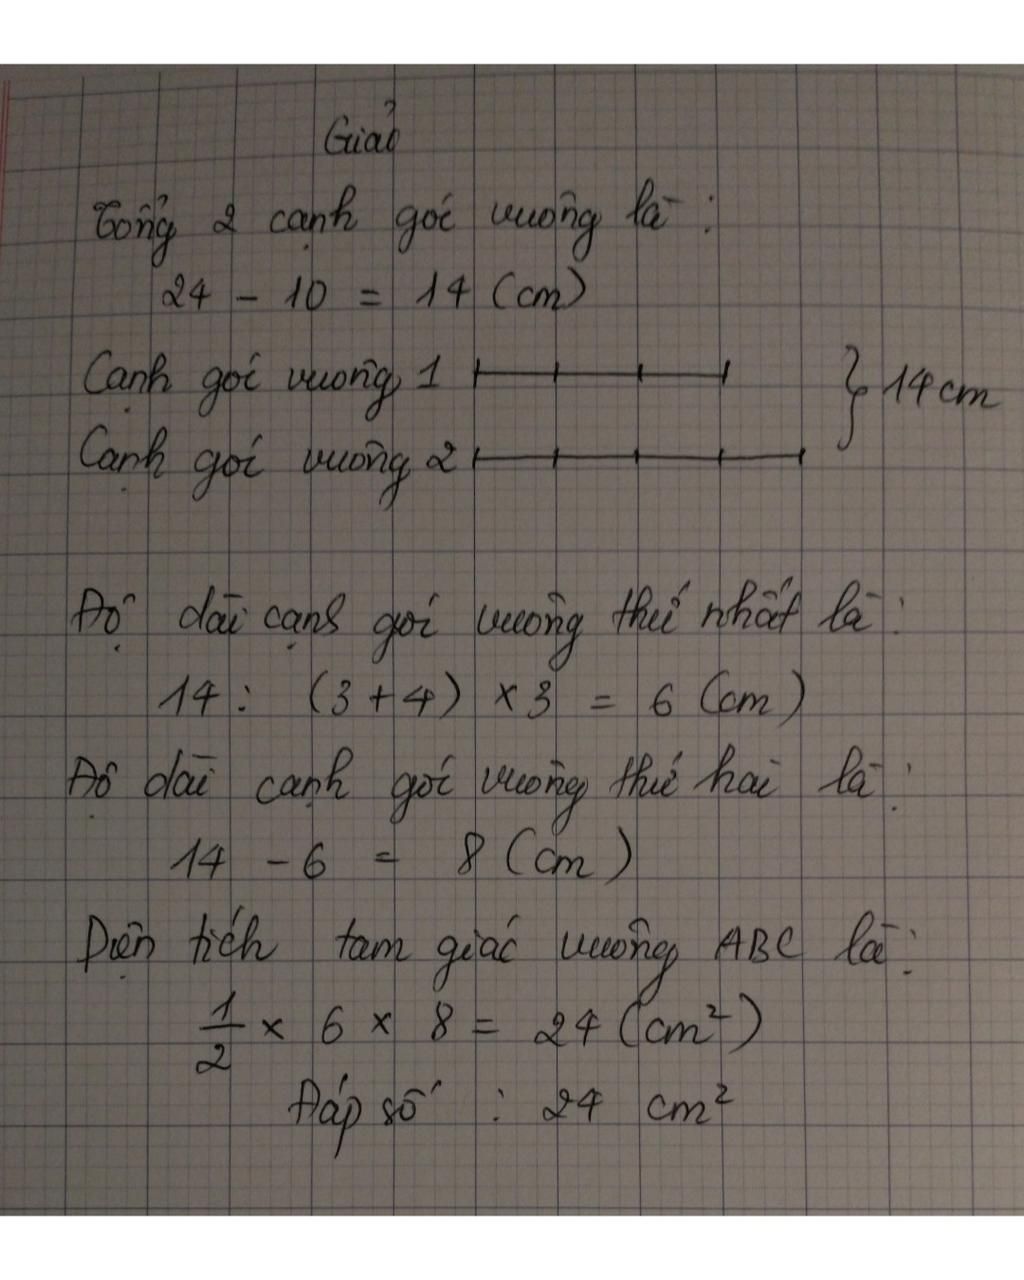 Giải
Tổng 2 cạnh góc vuông là :
24 - 10 = 14 (cm)
Cạnh góc vuông 1
14 cm
Cạnh góc vuông 2
Độ dài cạnh góc vuông thứ nhất là :
14 : (3 + 4) x 3 = 6 (cm)
Độ dài cạnh góc vuông thứ hai là :
14 - 6 = 8 (cm)
Diện tích tam giác vuông ABC là :
1/2 x 6 x 8 = 24 (cm²)
Đáp số : 24 cm²